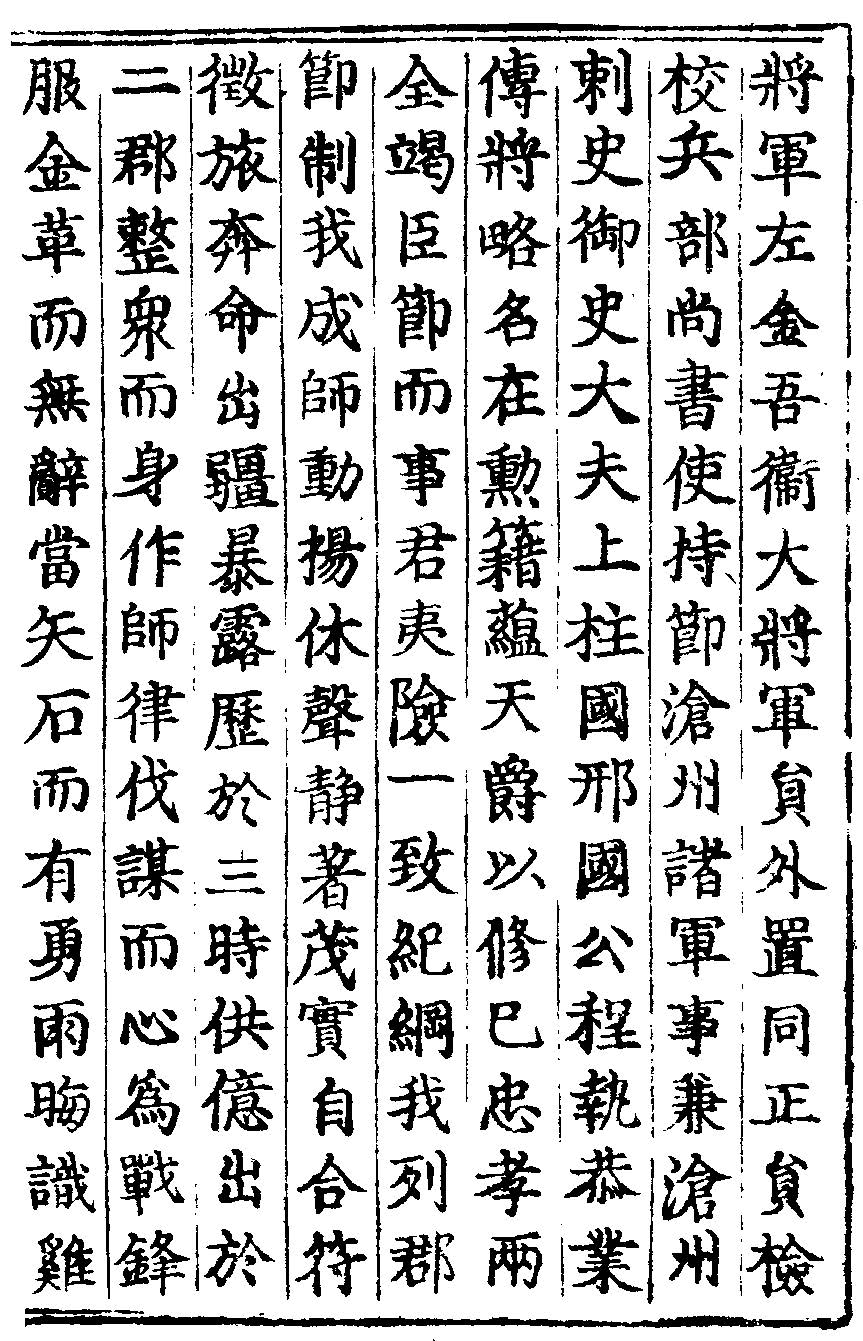 將軍左金吾衞大將軍貟外置同正貟檢
校兵部尚書使持節滄州諸軍事兼滄州
刺史御史大夫上柱國邢國公程執恭業
傳將略名在勲籍蘊天爵以修巳忠孝兩
全竭臣節而事君夷險一致紀綱我列郡
節制我成師動揚休聲静著茂實自合符
徵旅奔命出疆暴露歷於三時供億出於
二郡整衆而身作師律伐謀而心為戰鋒
服金革而無辭當矢石而有勇雨晦識雞